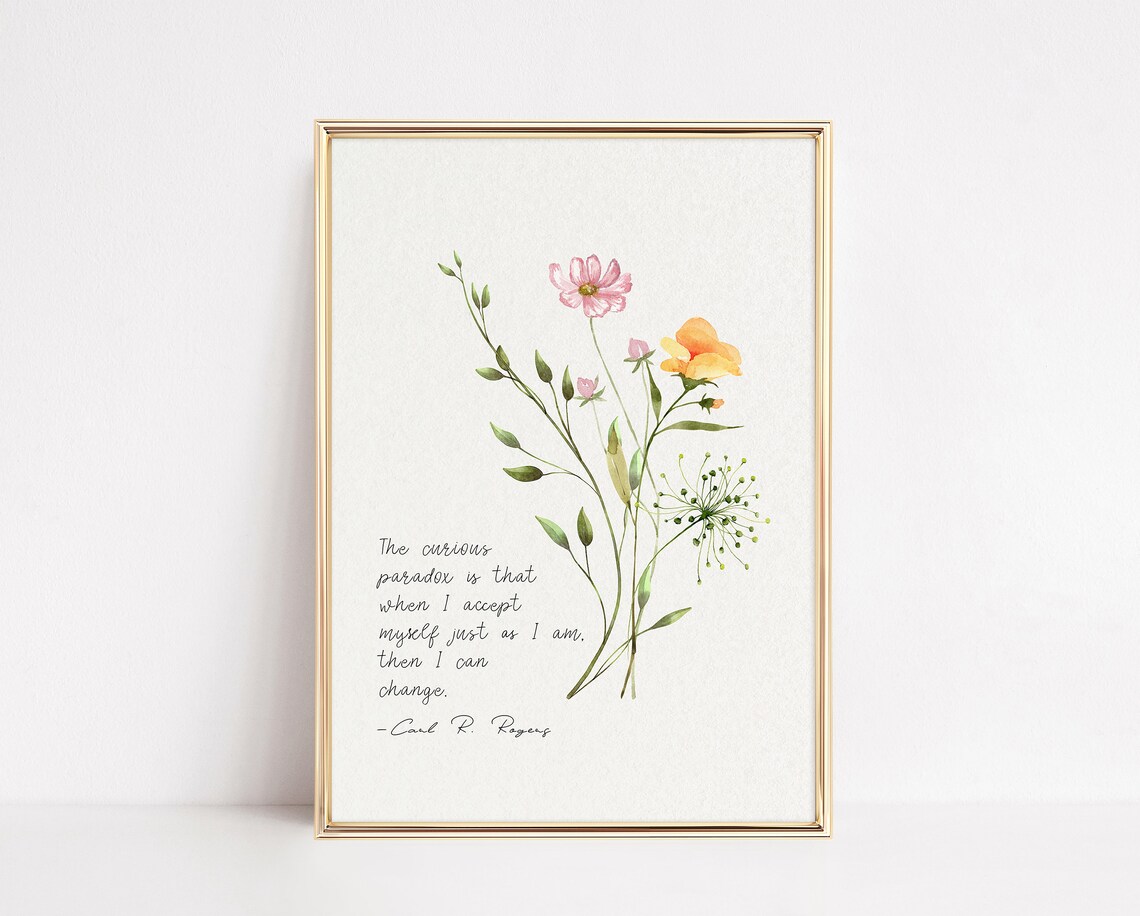 The curious
paradox is that
when I accept
myself just as I am,
then I can
change.
-Carl R. Rogers